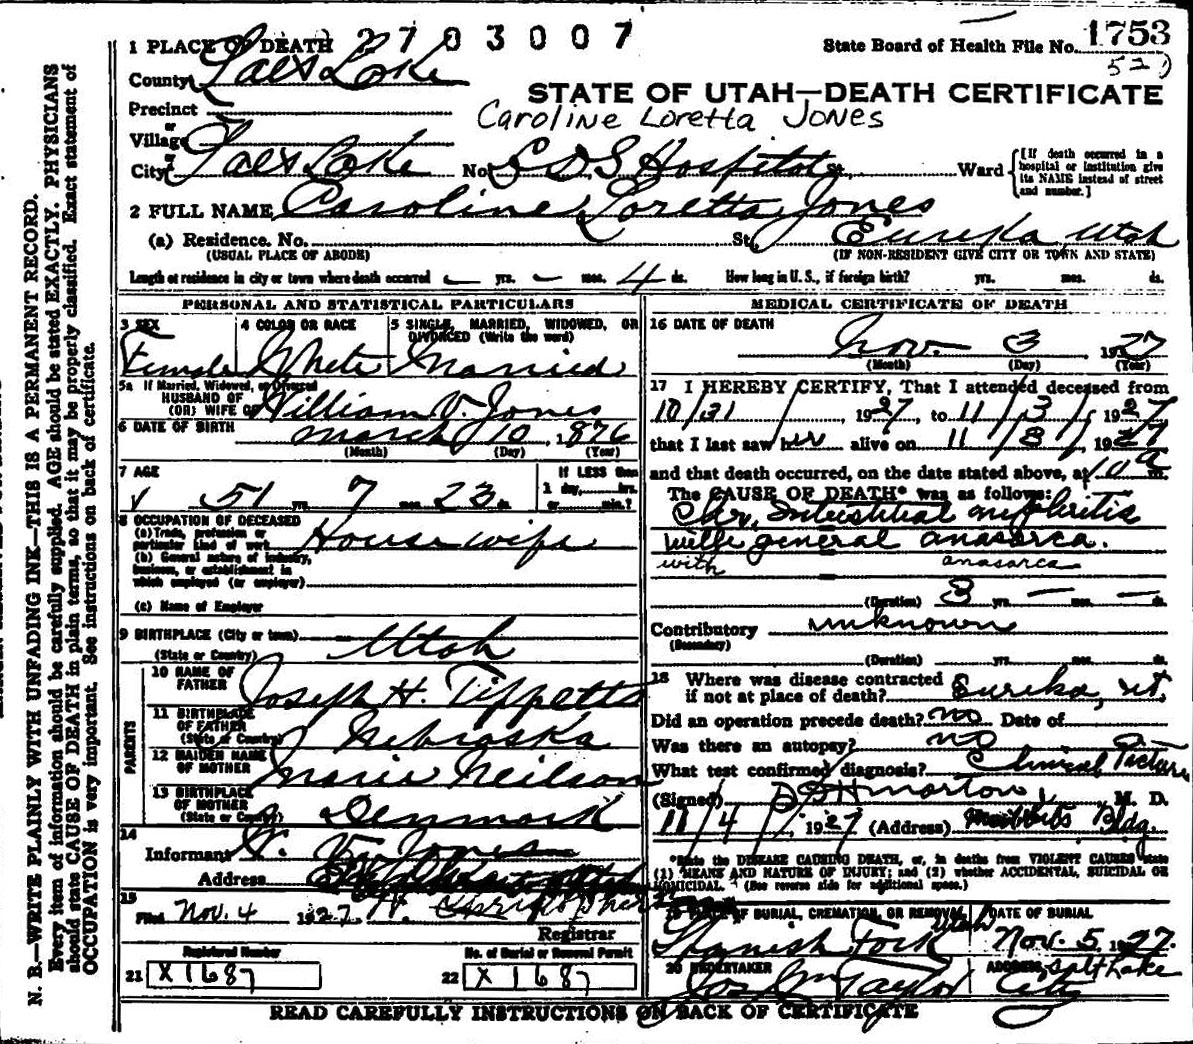 2703007
State Board of Health File No. 1753
1 PLACE OF DEATH
County Salt Lake
STATE OF UTAH—DEATH CERTIFICATE
Precinct
Caroline Loretta Jones
or
Village
or
City Salt Lake No. L D S Hospital St. Ward
[If death occurred in a hospital or institution give its NAME instead of street and number.]
2 FULL NAME Caroline Loretta Jones
(a) Residence. No. St. Eureka, Utah
(USUAL PLACE OF ABODE) (IF NON-RESIDENT GIVE CITY OR TOWN AND STATE)
Length of residence in city or town where death occurred — yrs. — mos. 4 ds. How long in U. S., if foreign birth? yrs. mos. ds.
PERSONAL AND STATISTICAL PARTICULARS
3 SEX
Female
4 COLOR OR RACE
White
5 SINGLE, MARRIED, WIDOWED, OR DIVORCED (Write the word)
Married
5a If Married, Widowed, or Divorced
HUSBAND OF
(OR) WIFE OF William V. Jones
6 DATE OF BIRTH March 10, 1876
(Month) (Day) (Year)
7 AGE
51 yrs. 7 mos. 23 ds.
If LESS than
1 day, hrs.
or min.?
8 OCCUPATION OF DECEASED
(a) Trade, profession or
particular kind of work Housewife
(b) General nature of industry,
business, or establishment in
which employed (or employer)
(c) Name of Employer
9 BIRTHPLACE (City or town)
(State or Country) Utah
PARENTS
10 NAME OF
FATHER Joseph H. Tippetts
11 BIRTHPLACE
OF FATHER
(State or Country) Nebraska
12 MAIDEN NAME
OF MOTHER Marie Neilson
13 BIRTHPLACE
OF MOTHER
(State or Country) Denmark
14
Informant W. V. Jones
Address
15
Filed Nov. 4 1927. H.
Registrar
Registered Number No. of Burial or Removal Permit
21 X1687 22 X1687
MEDICAL CERTIFICATE OF DEATH
16 DATE OF DEATH
Nov. 3, 1927
(Month) (Day) (Year)
17 I HEREBY CERTIFY, That I attended deceased from
10/31/, 1927 to 11/3/, 1927
that I last saw her alive on 11/3/, 1927
and that death occurred, on the date stated above, at 10 a m.
The CAUSE OF DEATH* was as follows:
Chr. Interstitial nephritis
with general anasarca.
with anasarca
(Duration) 3 yrs. — mos. — ds.
Contributory unknown
(Secondary)
(Duration) yrs. mos. ds.
18 Where was disease contracted
if not at place of death? Eureka, Ut.
Did an operation precede death? no Date of
Was there an autopsy? no
What test confirmed diagnosis? Clinical Picture
(Signed) M. D.
11/4/, 1927 (Address) Bldg.
*State the DISEASE CAUSING DEATH, or, in deaths from VIOLENT CAUSES state
(1) MEANS AND NATURE OF INJURY; and (2) whether ACCIDENTAL, SUICIDAL OR
HOMICIDAL. (See reverse side for additional space.)
19 PLACE OF BURIAL, CREMATION, OR REMOVAL
Spanish Fork Utah
DATE OF BURIAL
Nov. 5, 1927.
20 UNDERTAKER
Jos Wm Taylor
ADDRESS Salt Lake
City
READ CAREFULLY INSTRUCTIONS ON BACK OF CERTIFICATE
N. B.—WRITE PLAINLY WITH UNFADING INK—THIS IS A PERMANENT RECORD.
Every item of information should be carefully supplied. AGE should be stated EXACTLY. PHYSICIANS
should state CAUSE OF DEATH in plain terms, so that it may be properly classified. Exact statement of
OCCUPATION is very important. See instructions on back of certificate.